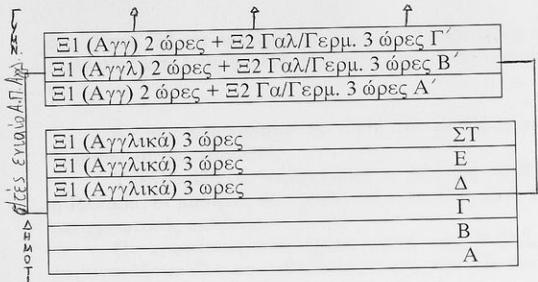 ΓΥΜΝ
Ξ1 (Αγγ) 2 ώρες + Ξ2 Γαλ/Γερμ. 3 ώρες Γ΄
Ξ1 (Αγγλ) 2 ώρες + Ξ2 Γαλ/Γερμ. 3 ώρες Β΄
Ξ1 (Αγγ) 2 ώρες + Ξ2 Γα/Γερμ. 3 ώρες Α΄
ενιαίο Α.Π.
Ξ1 (Αγγλικά) 3 ώρες ΣΤ
Ξ1 (Αγγλικά) 3 ώρες Ε
Ξ1 (Αγγλικά) 3 ωρες Δ
Γ
Β
Α
ΔΗΜΟΤ